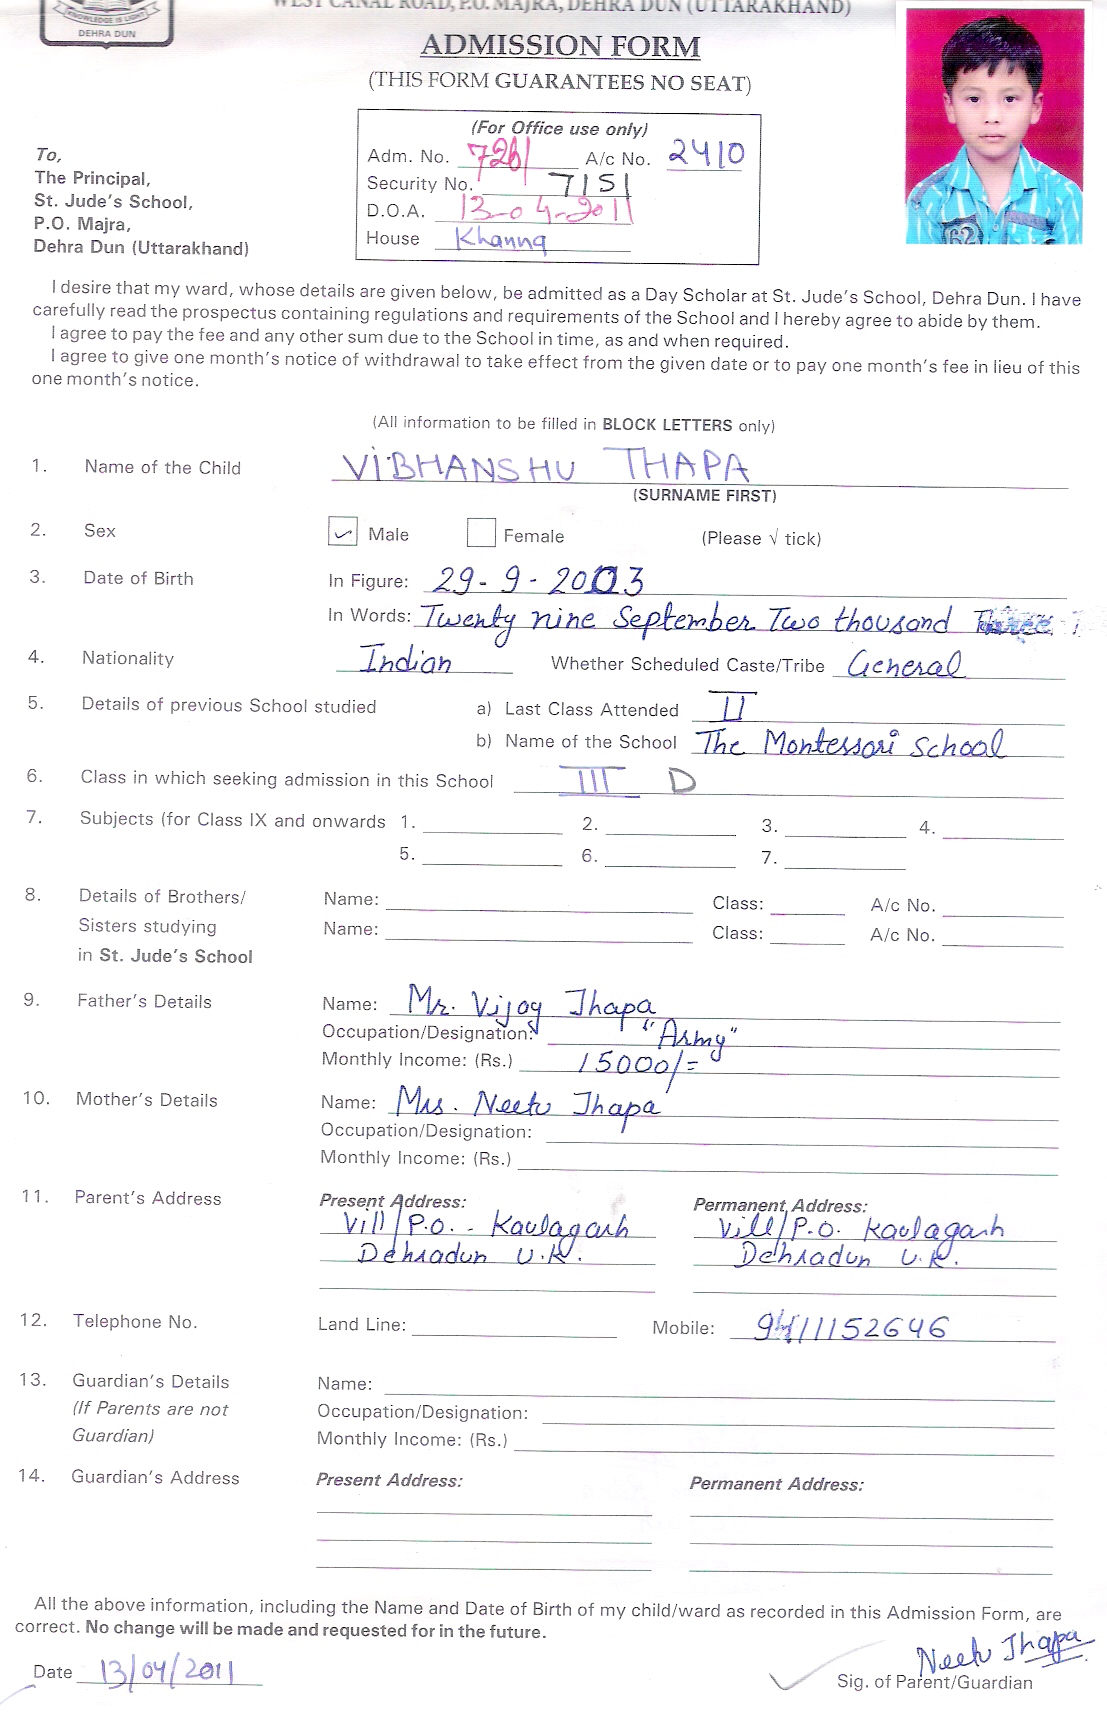 WEST CANAL ROAD, P.O. MAJRA, DEHRA DUN (UTTARAKHAND)
KNOWLEDGE IS LIGHT
DEHRA DUN
ADMISSION FORM
(THIS FORM GUARANTEES NO SEAT)
(For Office use only)
Adm. No. 7261 A/c No. 2410
Security No. 7151
D.O.A. 13-04-2011
House Khanna
To,
The Principal,
St. Jude's School,
P.O. Majra,
Dehra Dun (Uttarakhand)
62
I desire that my ward, whose details are given below, be admitted as a Day Scholar at St. Jude's School, Dehra Dun. I have
carefully read the prospectus containing regulations and requirements of the School and I hereby agree to abide by them.
I agree to pay the fee and any other sum due to the School in time, as and when required.
I agree to give one month's notice of withdrawal to take effect from the given date or to pay one month's fee in lieu of this
one month's notice.
(All information to be filled in BLOCK LETTERS only)
1. Name of the Child VIBHANSHU THAPA
(SURNAME FIRST)
2. Sex Male Female (Please √ tick)
3. Date of Birth In Figure: 29-9-2003
In Words: Twenty nine September Two thousand Three
4. Nationality Indian Whether Scheduled Caste/Tribe General
5. Details of previous School studied a) Last Class Attended II
b) Name of the School The Montessori School
6. Class in which seeking admission in this School III D
7. Subjects (for Class IX and onwards 1. 2. 3. 4.
5. 6. 7.
8. Details of Brothers/ Name: Class: A/c No.
Sisters studying Name: Class: A/c No.
in St. Jude's School
9. Father's Details Name: Mr. Vijay Thapa
Occupation/Designation: "Army"
Monthly Income: (Rs.) 15000/=
10. Mother's Details Name: Mrs. Neetu Thapa
Occupation/Designation:
Monthly Income: (Rs.)
11. Parent's Address Present Address: Permanent Address:
Vill/P.O. - Kaulagarh Vill/P.O. Kaulagarh
Dehradun U.K. Dehradun U.K.
12. Telephone No. Land Line: Mobile: 9411152646
13. Guardian's Details Name:
(If Parents are not Occupation/Designation:
Guardian) Monthly Income: (Rs.)
14. Guardian's Address Present Address: Permanent Address:
All the above information, including the Name and Date of Birth of my child/ward as recorded in this Admission Form, are
correct. No change will be made and requested for in the future.
Neetu Thapa
Date 13/04/2011 Sig. of Parent/Guardian